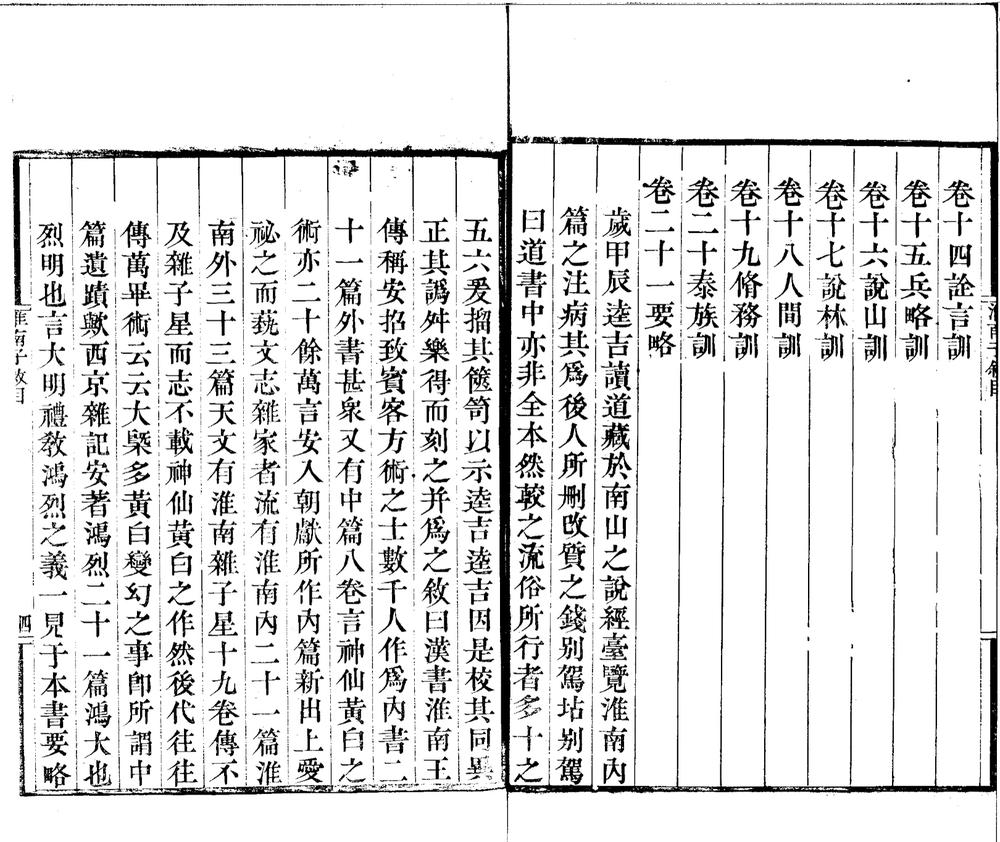 卷十四詮言訓
卷十五兵略訓
卷十六說山訓
卷十七說林訓
卷十八人間訓
卷十九脩務訓
卷二十泰族訓
卷二十一要略
歲甲辰逵吉讀道藏於南山之說經臺覽淮南內
篇之注病其爲後人所刪改質之錢別駕坫別駕
曰道書中亦非全本然較之流俗所行者多十之
五六爰搊其篋笥以示逵吉逵吉因是校其同異
正其譌舛樂得而刻之并爲之敘曰漢書淮南王
傳稱安招致賓客方術之士數千人作爲內書二
十一篇外書甚衆又有中篇八卷言神仙黃白之
術亦二十餘萬言安入朝獻所作內篇新出上愛
祕之而蓺文志雜家者流有淮南內二十一篇淮
南外三十三篇天文有淮南雜子星十九卷傳不
及雜子星而志不載神仙黃白之作然後代往往
傳萬畢術云云大槩多黃白變幻之事卽所謂中
篇遺蹟歟西京雜記安著鴻烈二十一篇鴻大也
烈明也言大明禮敎鴻烈之義一見于本書要略
淮南子敘目
四